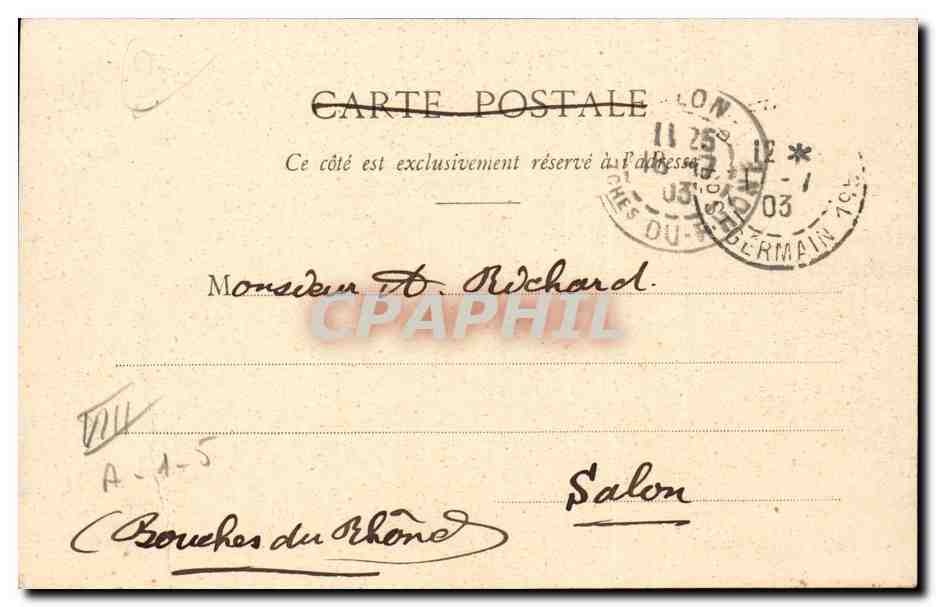 CARTE POSTALE
Ce côté est exclusivement réservé à l'adresse
LON
11 25
03
CHES DU-R
12 *
-1
03
GERMAIN
Monsieur A. Richard.
CPAPHIL
VIII
A-1-5
Salon
(Bouches du Rhône)